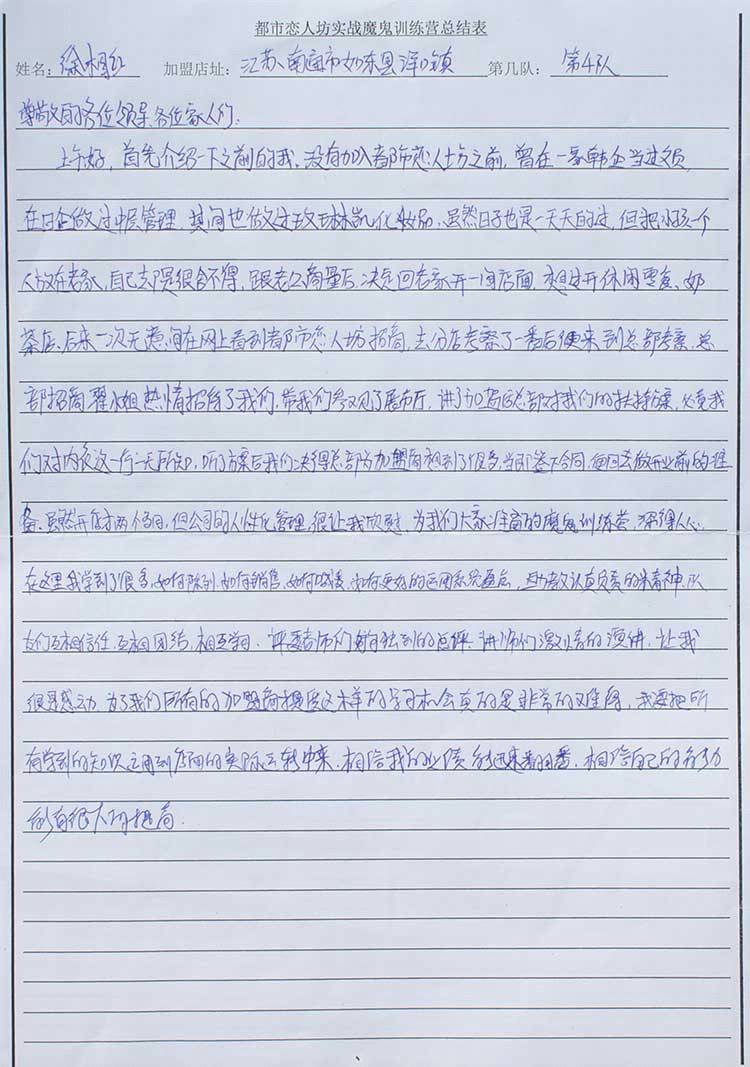 都市恋人坊实战魔鬼训练营总结表
姓名：徐相红 加盟店址：江苏南通市如东县洋口镇 第几队：第4队
尊敬的各位领导各位家人们：
上午好，首先介绍一下之前的我，没有加入都市恋人坊之前，曾在一家韩企当过文员，
在日企做过中层管理，其间也做过玫琳凯化妆品，虽然日子也是一天天的过，但把小孩一个
人放在老家，自己实很舍不得，跟老公商量后，决定回老家开一间店面，想过开休闲零食、奶
茶店，后来一次无意间在网上看到都市恋人坊招商，去分店考察了一番后便来到总部考察，总
部招商翟小姐热情招待了我们，带我们参观了展示厅，讲了加盟总部对我们的扶持方案，必竟我
们对内衣这一行一无所知，听了方案后我们决得总部为加盟商想到了很多，当即签下合同，便回去做开业前的准
备，虽然开店才两个多月，但公司的人性化管理，很让我欣慰，为我们大家准备的魔鬼训练营，深得人心，
在这里我学到了很多，如何陈列，如何销售，如何沟通，如何更好的运用系统盈后，助教认真负责的精神，队
友们互相信任，互相团结，相互学习，评委老师们独到的点评，讲师们激情的演讲，让我
很是感动，为了我们所有的加盟商提供这样的学习机会真的是非常的难得，我要把所
有学到的知识运用到店面的实际运转中来，相信我的业绩能翻番，相信自己的能力
能有很大的提高。